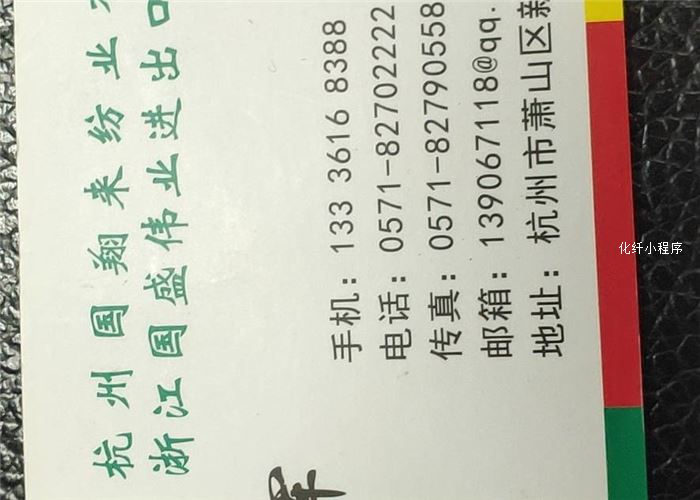 杭州国翔来纺业
浙江国盛伟业进出口
手机：133 3616 8388
电话：0571-82702222
传真：0571-82790558
邮箱：139067118@qq.
地址：杭州市萧山区新
化纤小程序